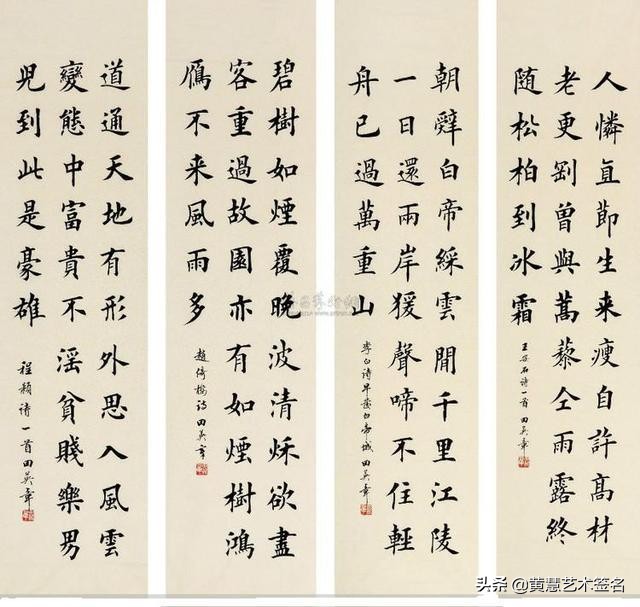 人憐直節生来瘦自許髙材
老更剛曾與蒿藜仝雨露終
随松柏到冰霜
王安石诗一首 田英章
朝辤白帝綵雲間千里江陵
一日還兩岸猨聲啼不住輕
舟已過萬重山
李白诗早發白帝城 田英章
碧樹如煙覆晚波清秌欲盡
客重過故園亦有如煙樹鴻
鴈不来風雨多
趙倚樓诗 田英章
道通天地有形外思入風雲
變態中富貴不滛貧賤樂男
兒到此是豪雄
程颢诗一首田英章
头条 @黄慧艺术签名